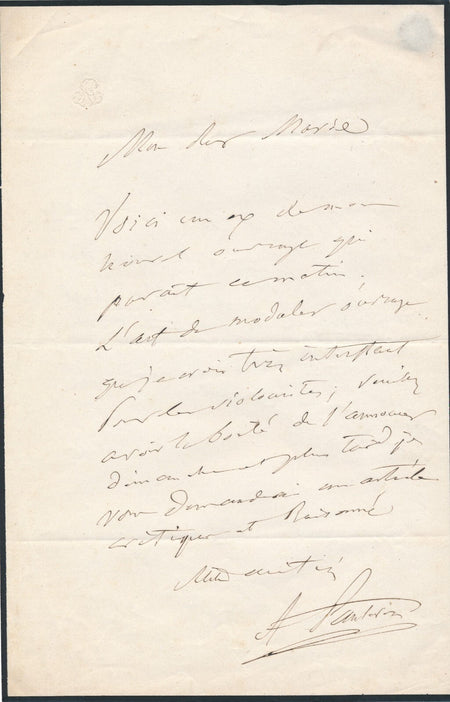 Mon cher Marie
Voici un ex de mon
nouvel ouvrage qui
parait ce matin.
L'art de moduler ouvrage
que je crois très intéressant
pour les violonistes; veuillez
avoir la bonté de l'annoncer
dimanche et plus tard je
vous demanderai un article
critique et Raisonné
Mille amitiés
A Panseron